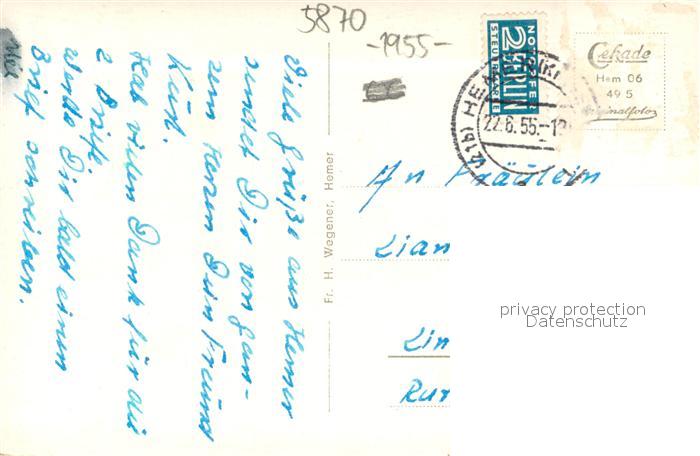 5870
-1955-
Viele Grüße aus Hemer
sendet Dir von gan-
zem Herzen Dein Freund
Kurt.
Hab vielen Dank für die
2 Briefe.
Werde Dir bald einen
Brief schreiben.
Fr. H. Wegener, Hemer
NOTOPFER
2 BERLIN
STEUERMARKE
(21b) HEMER
22.6.55.-1
Cekade
Hem 06
49 5
Originalfoto
An Fräulein
Lian
Lin
Rur
privacy protection
Datenschutz